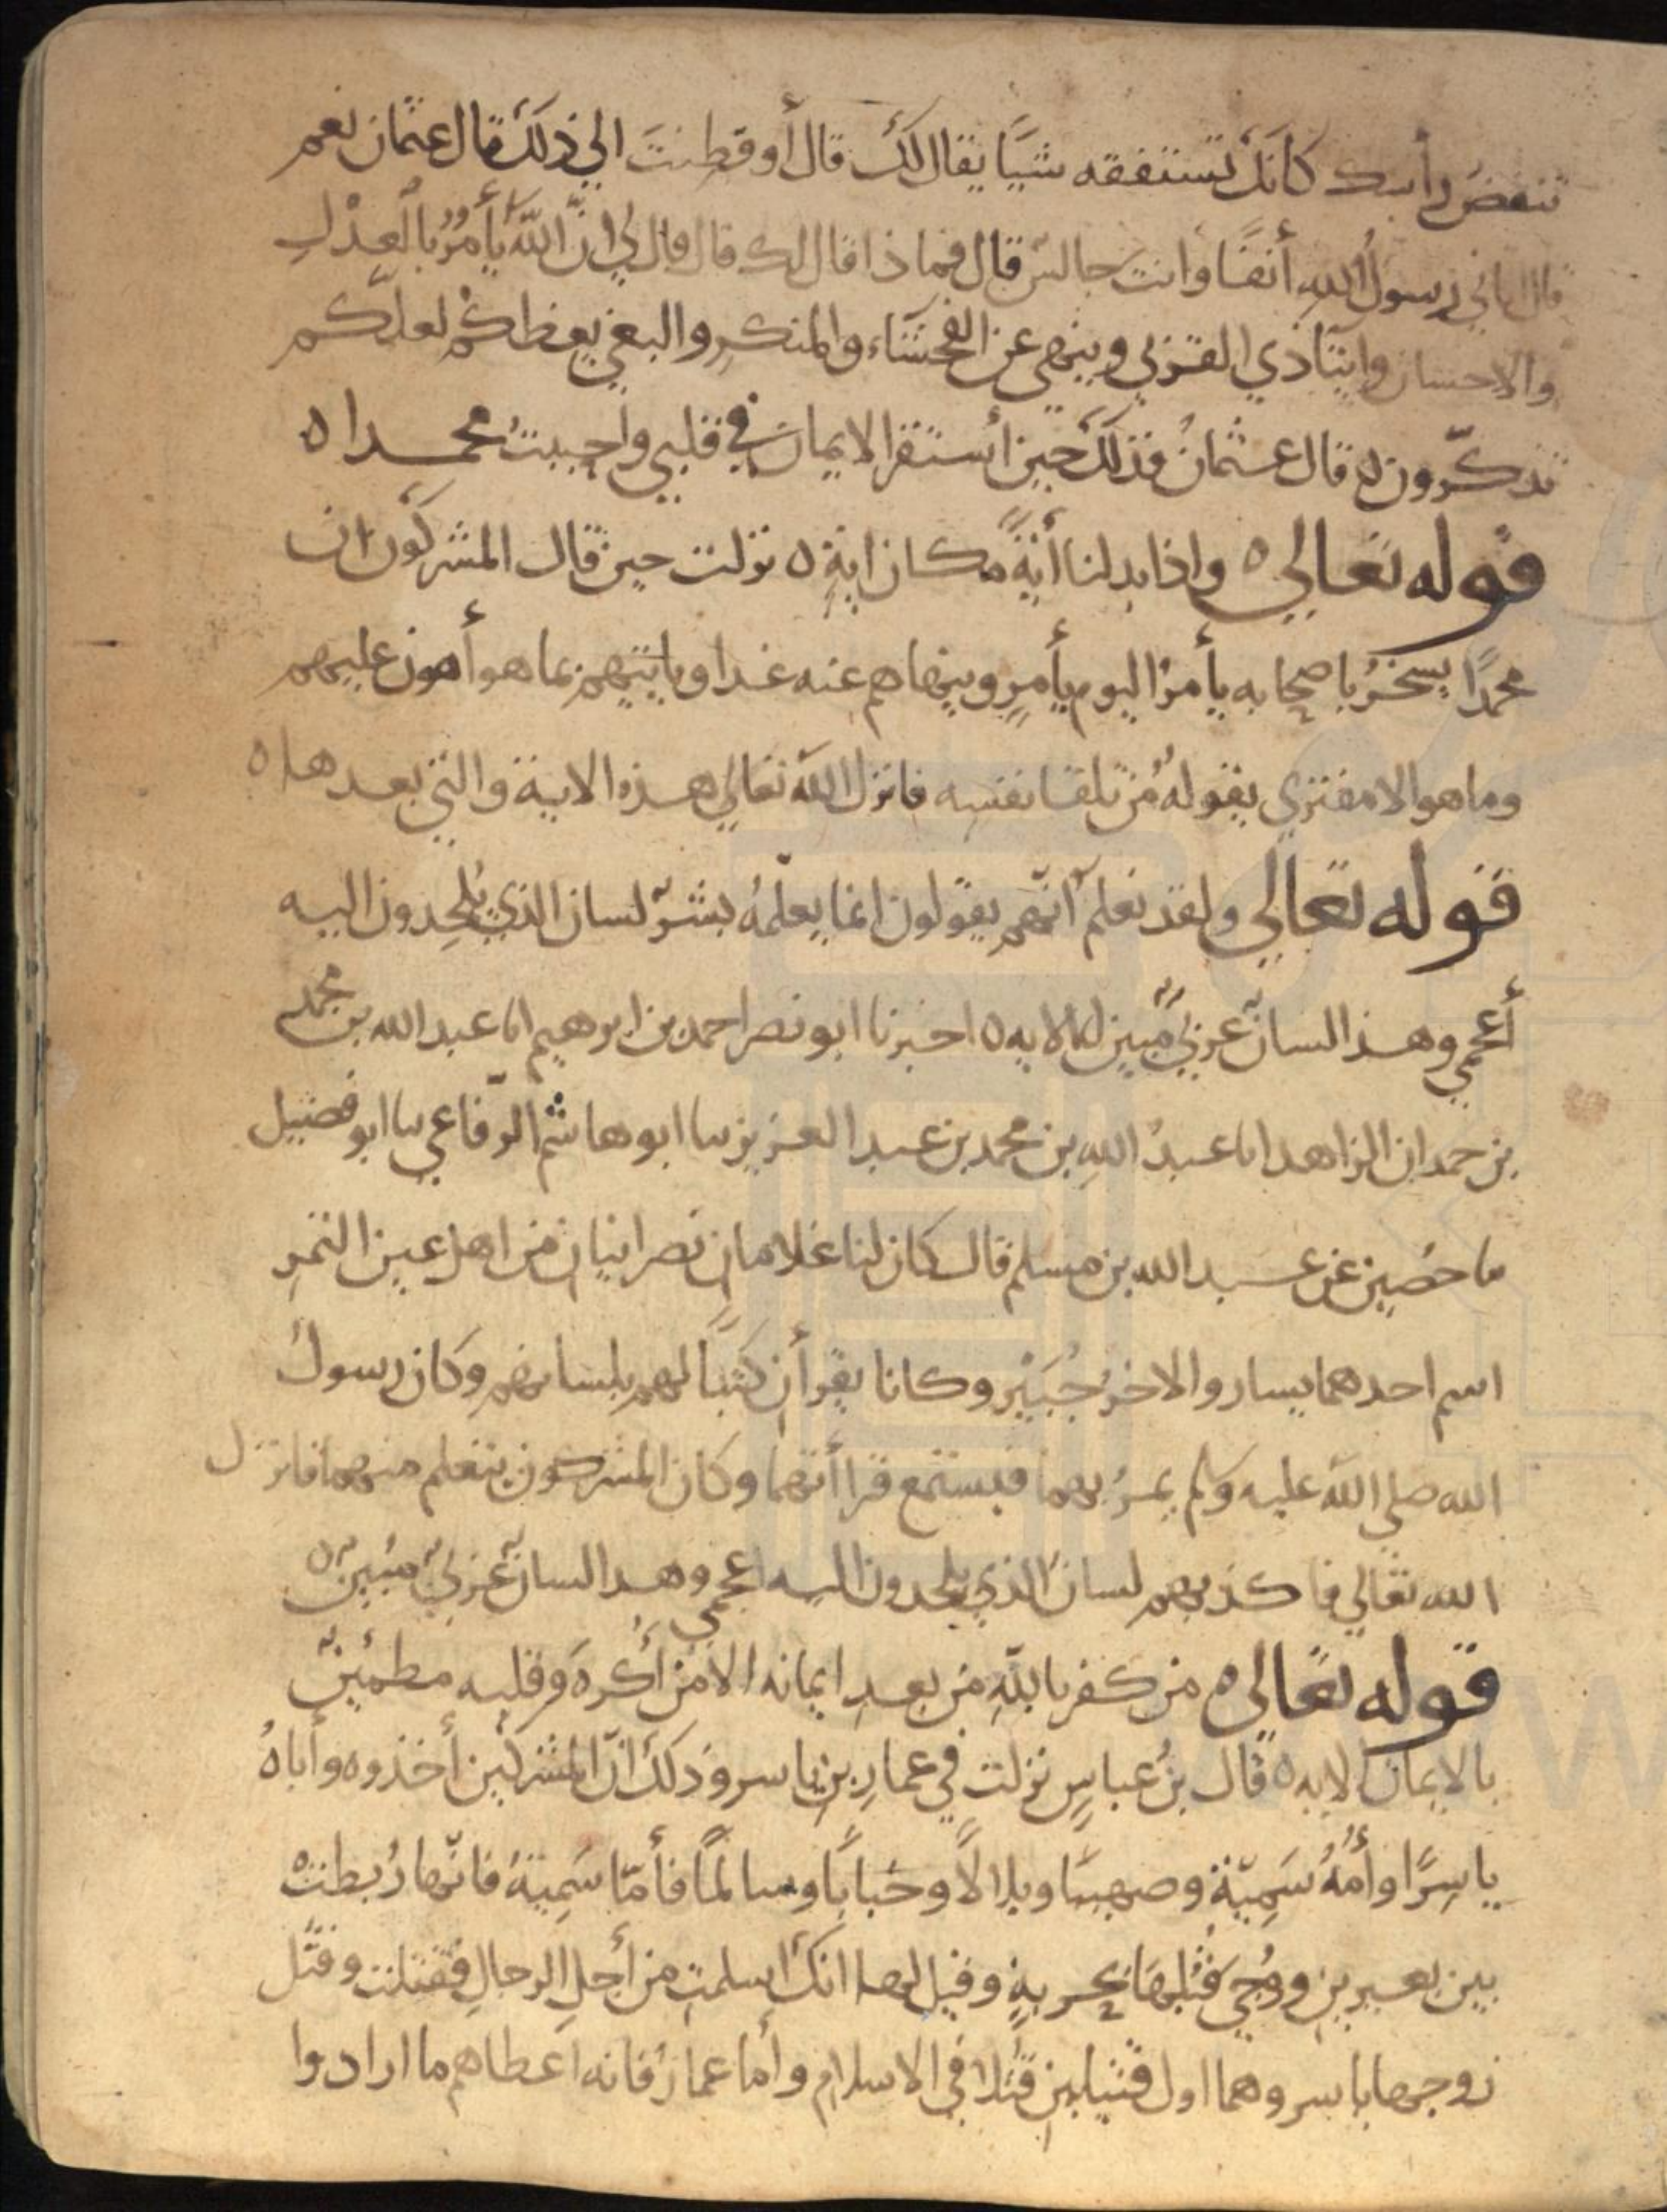 تنغض رأسك كانك تستفقه شيًا يقال لك قال أوفطنت الي ذلك قال عثمان نعم
قال اتاني رسول الله أنفًا وانت جالس قال فماذا قال لك قال قال لي ان الله يأمر بالعدل
والاحسان وايتا ذي القربي وينهي عن الفحشاء والمنكر والبغي يعظكم لعلكم
تذكرون ه قال عثمان فذلك حين أستقر الايمان في قلبي واحببت محمدا ه
قوله تعالي ه واذا بدلنا أيةً مكان ايةٍ ه نزلت حين قال المشركون ان
محمدًا يسخر باصحابه يأمر اليوم بأمرٍ وينهاهم عنه غدا وياتيهم بما هو أهون عليهم
وما هو الا مفتري يقوله من تلقا نفسه فانزل الله تعالي هذه الاية والتي بعدها ه
قوله تعالي ولقد نعلم أنهم يقولون انما يعلمه بشر لسان الذي يلحدون اليه
أعجمي وهذا لسان عربي مبين الايه ه اخبرنا ابو نصر احمد بن ابرهيم انا عبد الله بن محمد
بن حمدان الزاهد انا عبد الله بن محمد بن عبد العزيز سا ابو هاشم الرفاعي سا ابو فضيل
ما حصين عن عبد الله بن مسلم قال كان لنا غلامان نصرانيان من اهل عين التمر
اسم احدهما يسار والاخر جبير وكانا يقرأن كتبًا لهم بلسانهم وكان رسول
الله صلي الله عليه وسلم يمر بهما فيستمع قراأتهما وكان المشركون يتعلم منهما فانزل
الله تعالي فاكذبهم لسان الذي يلحدون اليه اعجمي وهذا لسان عربي مبين ه
قوله تعالي ه من كفر بالله من بعد ايمانه الا من أكره وقلبه مطمئن
بالايمان الايه ه قال بن عباس نزلت في عمار بن ياسر وذلك انّ المشركين أخذوه وأباه
ياسرًا وأمه سمية وصهيبًا وبلالًا وخبابًا وسالمًا فأما سمية فانها ربطت
بين بعيرين ووجي قبلها بحربةٍ وقيل لها انك اسلمت من أجل الرجال فقتلت وقتل
زوجها ياسر وهما اول قتيلين قتلا في الاسلام وأما عمار فانه اعطاهم ما ارادوا